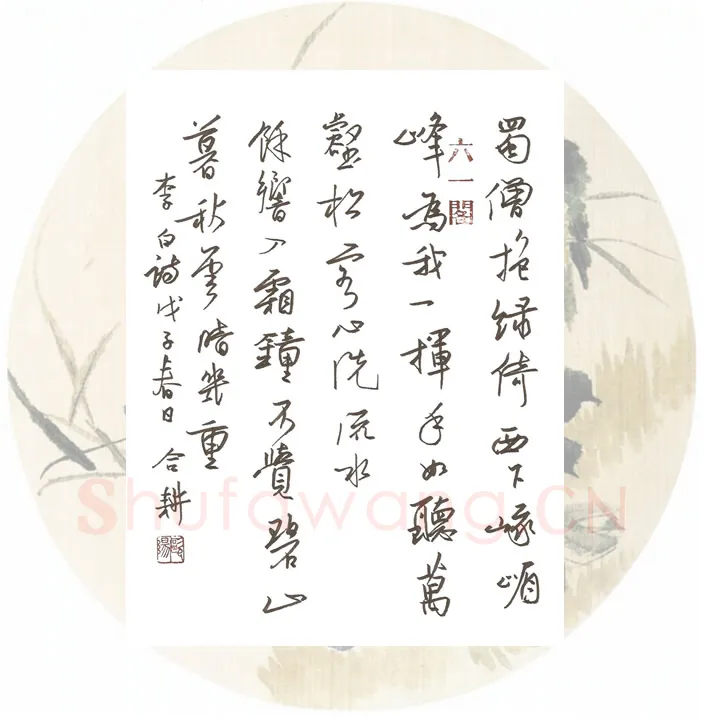 蜀僧抱緑倚西下峨嵋
峰為我一揮手如聽萬
壑松客心洗流水
餘響入霜鐘不覺碧山
暮秋雲暗幾重
李白詩戊子春日 合耕
六一閣
Shufawang.CN